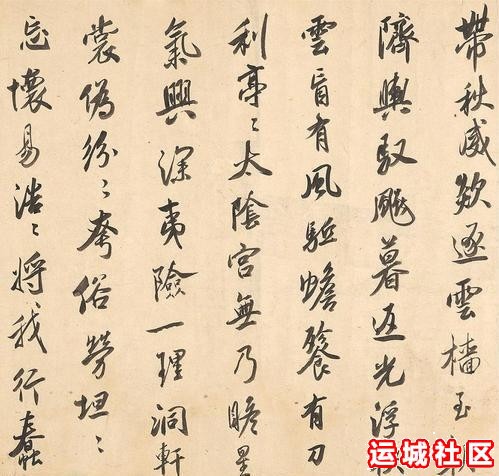 帶秋威欻逐雲檣至
隮輿馭飈暮返光浮
雲盲有風驅蟾餮有刀
利亭〻太陰宮無乃瞻星
氣興深夷險一理洞軒
裳偽紛〻奪俗勞坦〻
忘懷易浩〻將我行蠢
运城社区